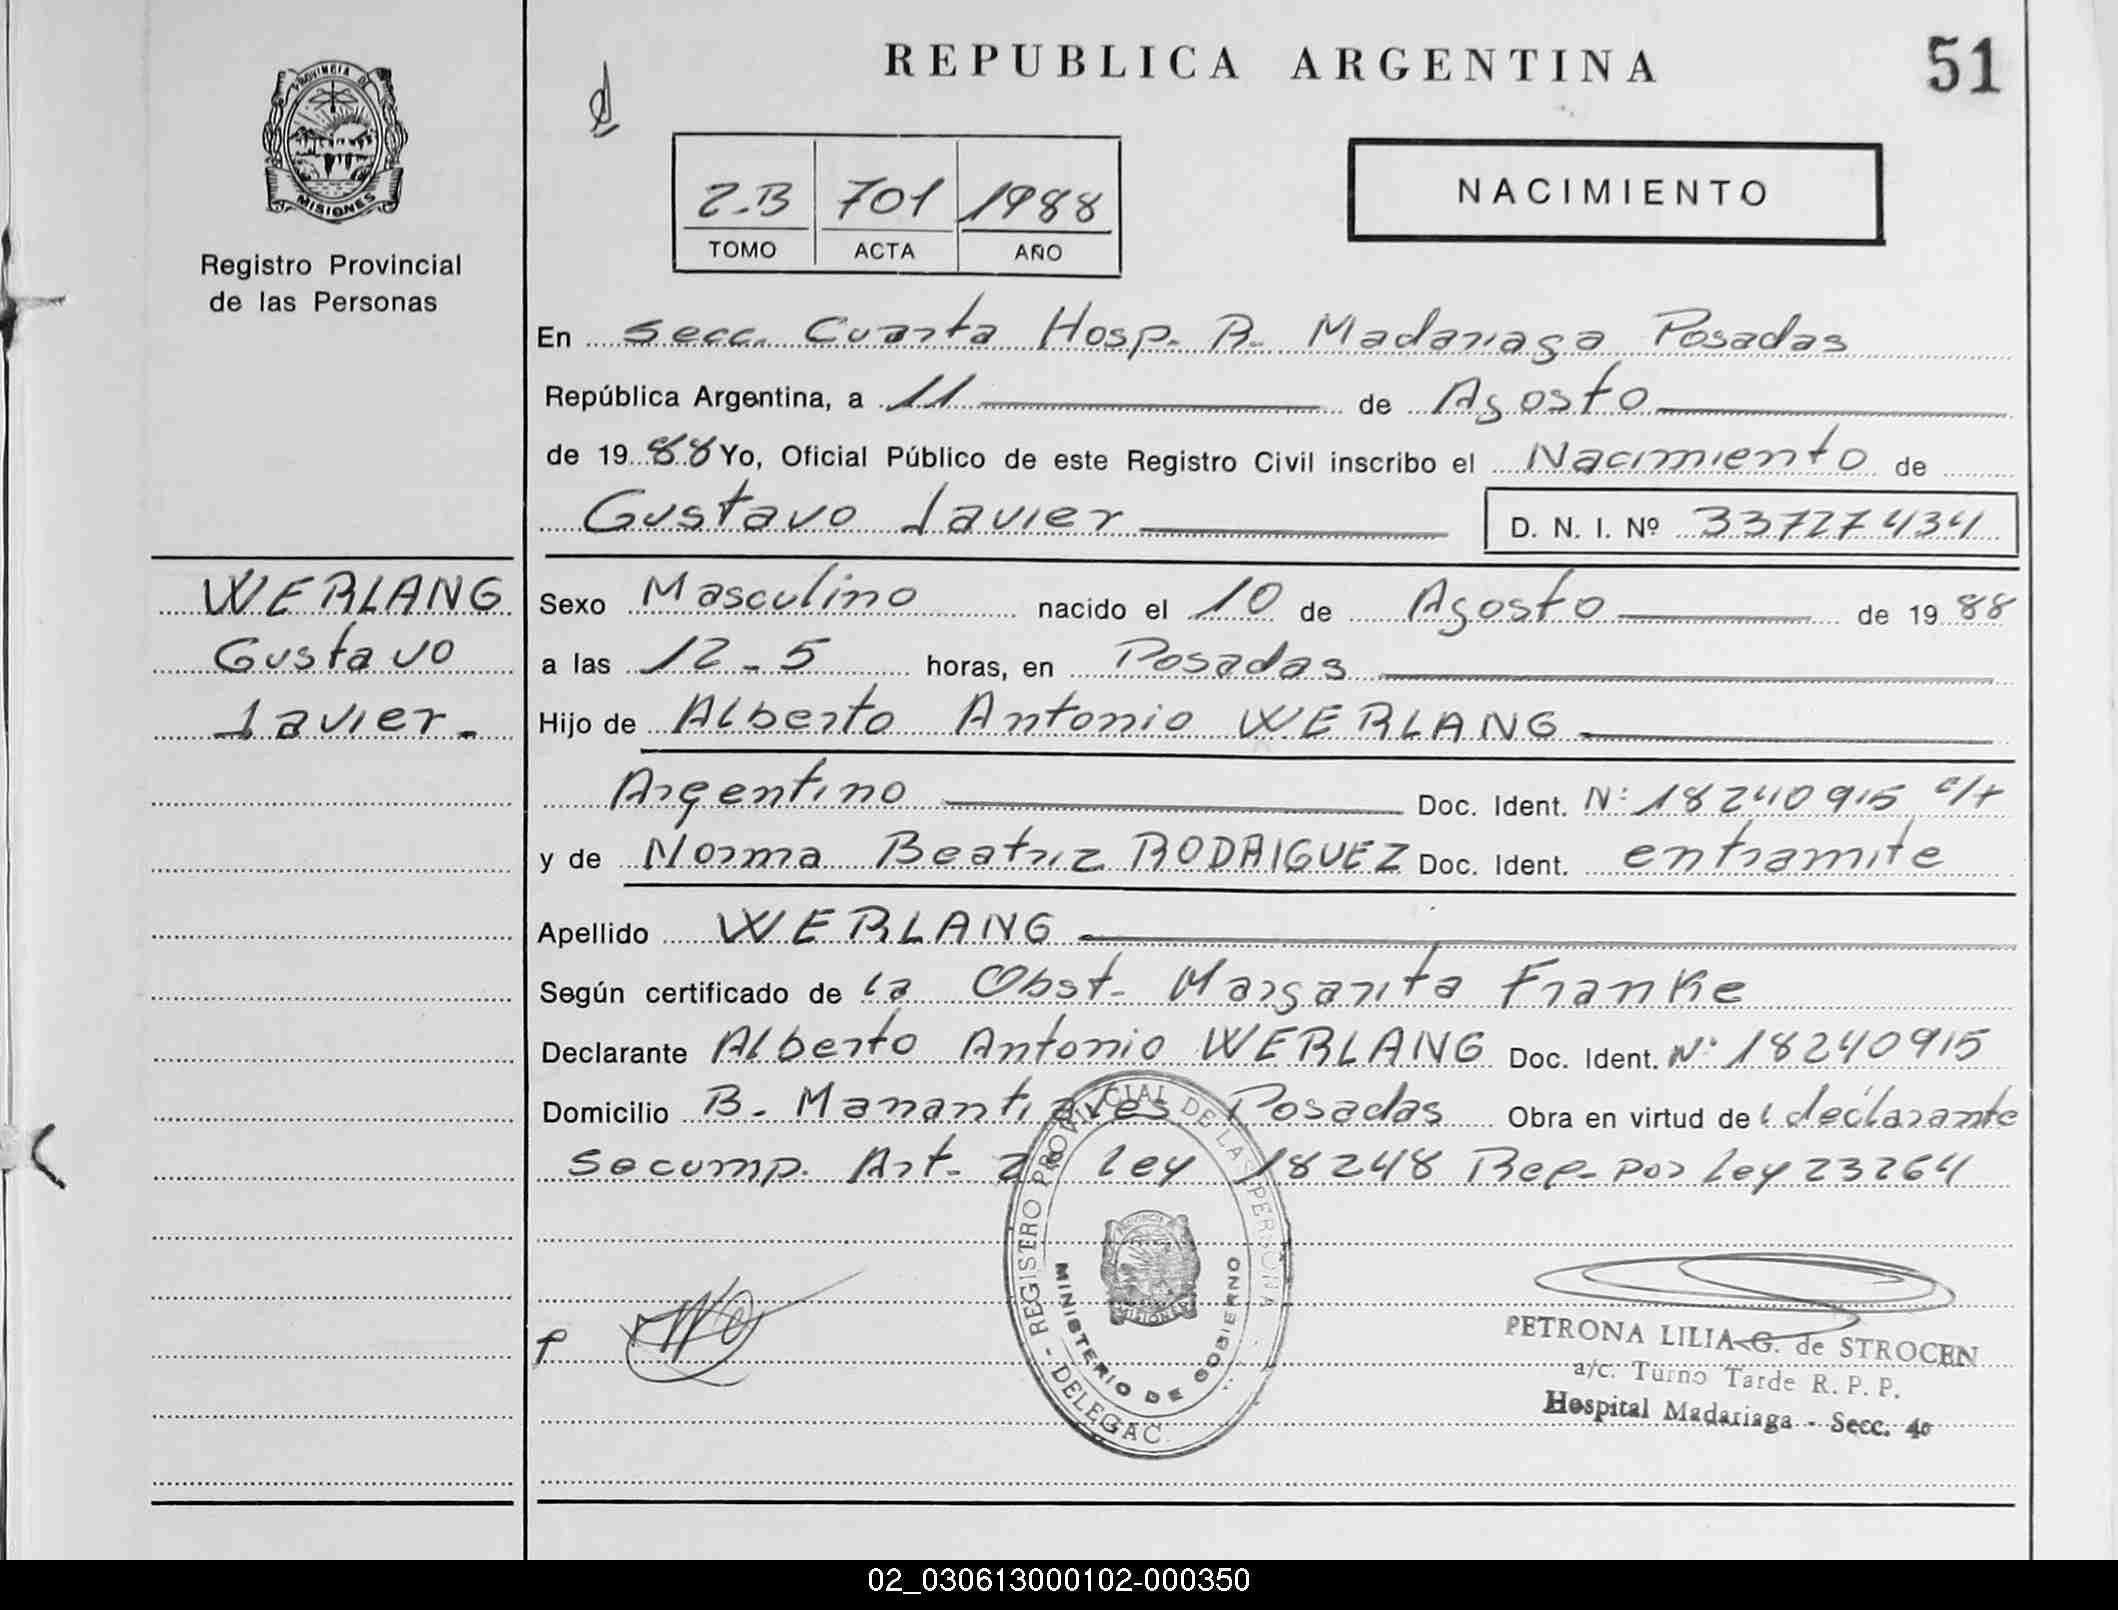 REPUBLICA ARGENTINA
51
PROVINCIA DE
MISIONES
Registro Provincial
de las Personas
2-B 701 1988
TOMO ACTA AÑO
NACIMIENTO
En Secc. Cuarta Hosp. R. Madariaga Posadas
República Argentina, a 11 de Agosto
de 1988 Yo, Oficial Público de este Registro Civil inscribo el Nacimiento de
Gustavo Javier D. N. I. Nº 33727434
WERLANG
Gustavo
Javier.-
Sexo Masculino nacido el 10 de Agosto de 1988
a las 12-5 horas, en Posadas
Hijo de Alberto Antonio WERLANG
Argentino Doc. Ident. Nº 18240915 c/t
y de Norma Beatriz RODRIGUEZ Doc. Ident. entramite
Apellido WERLANG
Según certificado de la Obst. Margarita Franke
Declarante Alberto Antonio WERLANG Doc. Ident. Nº 18240915
Domicilio B. Manantiales Posadas Obra en virtud del declarante
Se cump. Art. 2 Ley 18248 Rep. por Ley 23264
REGISTRO PROVINCIAL DE LAS PERSONA
MINISTERIO DE GOBIERNO
MISIONES
DELEGAC.
PETRONA LILIA G. de STROCEN
a/c. Turno Tarde R. P. P.
Hospital Madariaga - Secc. 4º
02_030613000102-000350